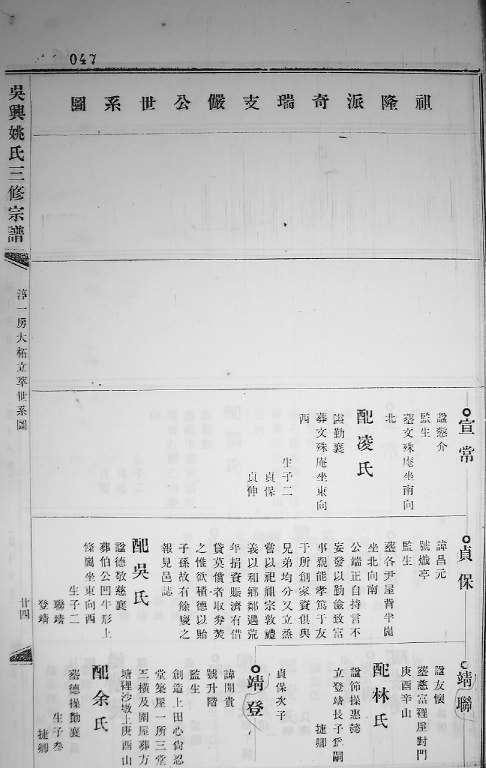 047
祺隆派奇瑞支儼公世系圖
吳興姚氏三修宗譜
淳一房大柘立萃世系圖
廿四
宣常
諡憨介
監生
墓文殊庵坐南向
北
配凌氏
諡勤襄
葬文殊庵坐東向
西
生子二
貞保
貞伸
貞保
諱昌元
號熾亭
監生
墓各尹屋背半闖
坐北向南
公端正自持言不
妄發以勤儉致富
事親能孝篤于友
于所創家資俱與
兄弟均分又立烝
嘗以祀祖宗敦禮
義以和鄉鄰遇荒
年捐資賑濟有借
貸莫償者取劵焚
之惟欲積德以貽
子孫故有餘慶之
報見邑誌
配吳氏
諡德敬慈襄
葬伯公凹牛形上
條崗坐東向西
生子二
聯靖
登靖
靖聯
諡友懷
墓慈富裡屋對門
庚酉辛山
配林氏
諡節操惠懿
立登靖長子為嗣
捷鄉
貞保次子
靖登
諱開貴
號升階
監生
創造上田心尚忍
堂築屋一所三堂
三橫及圍屋葬方
塘裡沙墩上庚酉山
配余氏
墓德操勤襄
生子叁
捷鄉